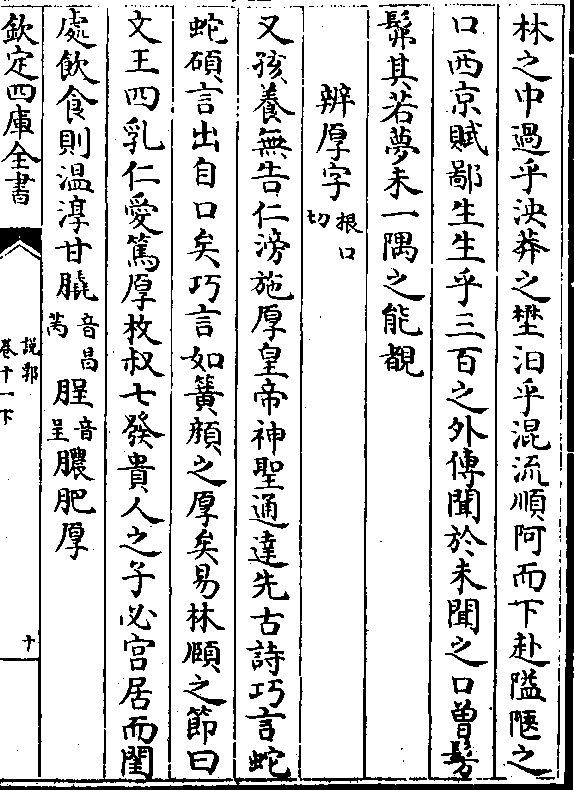 林之中過乎泱莽之壄汨乎混流順阿而下赴隘陿之
口西京賦鄙生生乎三百之外傳聞於未聞之口曽髣
髴其若夢未一隅之能覩
辨厚字根口切
又孩養無告仁滂施厚皇帝神聖通達先古詩巧言蛇
蛇碩言出自口矣巧言如簧顔之厚矣易林頤之節曰
文王四乳仁愛篤厚枚叔七發貴人之子必宫居而閨
處飲食則温淳甘膬音昌芮腥音呈醲肥厚
欽定四庫全書
說郛
卷十一下
十